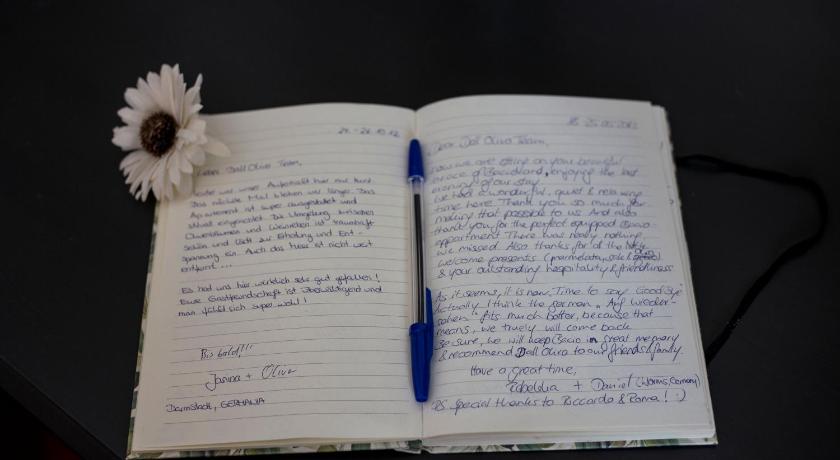 Liebe Dall Oliva Team,
leider war unser Aufenthalt hier nur kurz.
Das nächste Mal bleiben wir länger. Das
Apartement ist super ausgestattet und
eingerichtet. Die Umgebung zwischen
Olivenbäumen und Weinreben ist traumhaft
schön und lädt zur Erholung und Ent-
spannung ein. Auch das Meer ist nicht weit
entfernt...
Es hat uns hier wirklich sehr gut gefallen!
Eure Gastfreundschaft ist überwältigend und
man fühlt sich super wohl!
Bis bald!!!
Janina + Oliver
Darmstadt, GERMANIA
Dear Dall Oliva Team,
now we are sitting on your beautiful
enjoying the last
evening of our stay.
We had a wonderful, quiet & relaxing
time here. Thank you so much for
making that possible to us. And also
thank you for the perfect equipped
appartment. There was really nothing
we missed. Also thanks for all the
welcome presents
& your outstanding hospitality & friendliness
As it seems, it is now Time to say GoodBye
Actually I think the german "Auf Wieder-
sehen" fits much better, because that
means, we truely will come back.
Be sure, we will keep in great memory
& recommend Dall Oliva to our friends & family.
Have a great time,
+ Daniel (Worms, Germany)
PS Special thanks to Riccardo & Roma! :)